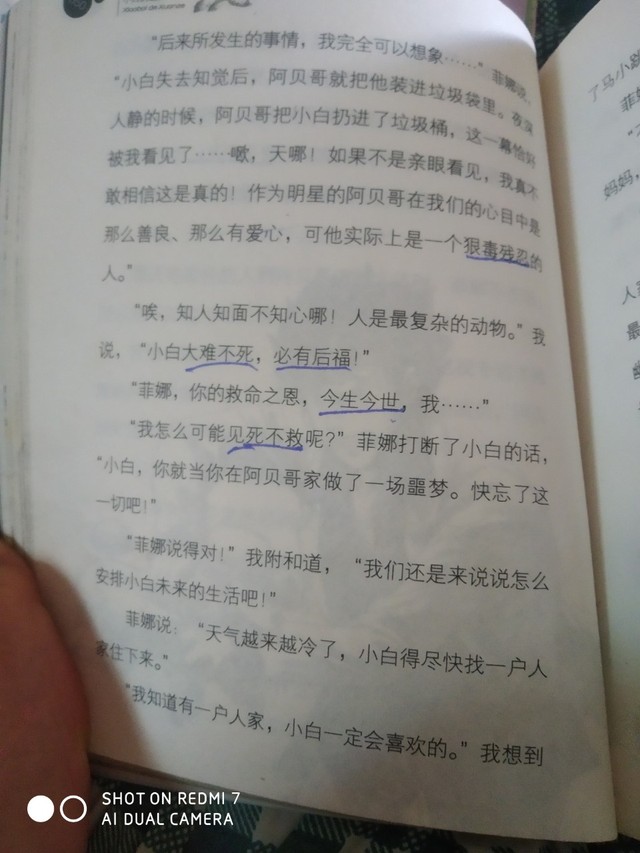 "后来所发生的事情，我完全可以想象……"菲娜说，
"小白失去知觉后，阿贝哥就把他装进垃圾袋里。夜深
人静的时候，阿贝哥把小白扔进了垃圾桶，这一幕恰好
被我看见了……嗷，天哪！如果不是亲眼看见，我真不
敢相信这是真的！作为明星的阿贝哥在我们的心目中是
那么善良、那么有爱心，可他实际上是一个狠毒残忍的
人。"
"唉，知人知面不知心哪！人是最复杂的动物。"我
说，"小白大难不死，必有后福！"
"菲娜，你的救命之恩，今生今世，我……"
"我怎么可能见死不救呢？"菲娜打断了小白的话，
"小白，你就当你在阿贝哥家做了一场噩梦。快忘了这
一切吧！"
"菲娜说得对！"我附和道，"我们还是来说说怎么
安排小白未来的生活吧！"
菲娜说："天气越来越冷了，小白得尽快找一户人
家住下来。"
"我知道有一户人家，小白一定会喜欢的。"我想到
了马小跳
妈妈，
SHOT ON REDMI 7
AI DUAL CAMERA